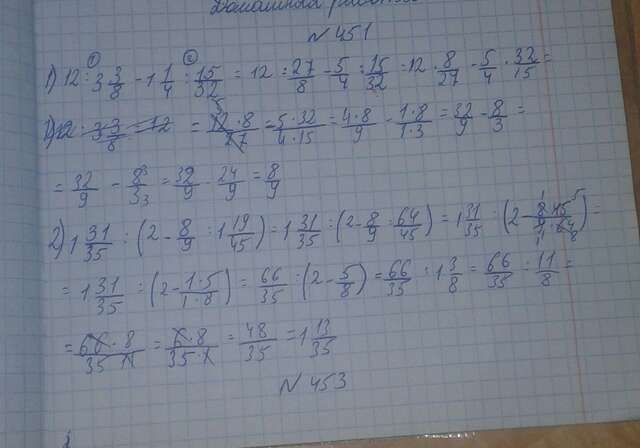 Домашняя работа
№ 451
1) 12 : 3 3/8 - 1 1/4 : 15/32 = 12 : 27/8 - 5/4 : 15/32 = 12 · 8/27 - 5/4 · 32/15 =
= 12·8/27 - 5·32/4·15 = 4·8/9 - 1·8/1·3 = 32/9 - 8/3 =
= 32/9 - 8/3 = 32/9 - 24/9 = 8/9
2) 1 31/35 : (2 - 8/9 : 1 19/45) = 1 31/35 : (2 - 8/9 : 64/45) = 1 31/35 : (2 - 8·45/9·64) =
= 1 31/35 : (2 - 1·5/1·8) = 66/35 : (2 - 5/8) = 66/35 : 1 3/8 = 66/35 : 11/8 =
= 66·8/35·11 = 6·8/35·1 = 48/35 = 1 13/35
№ 453